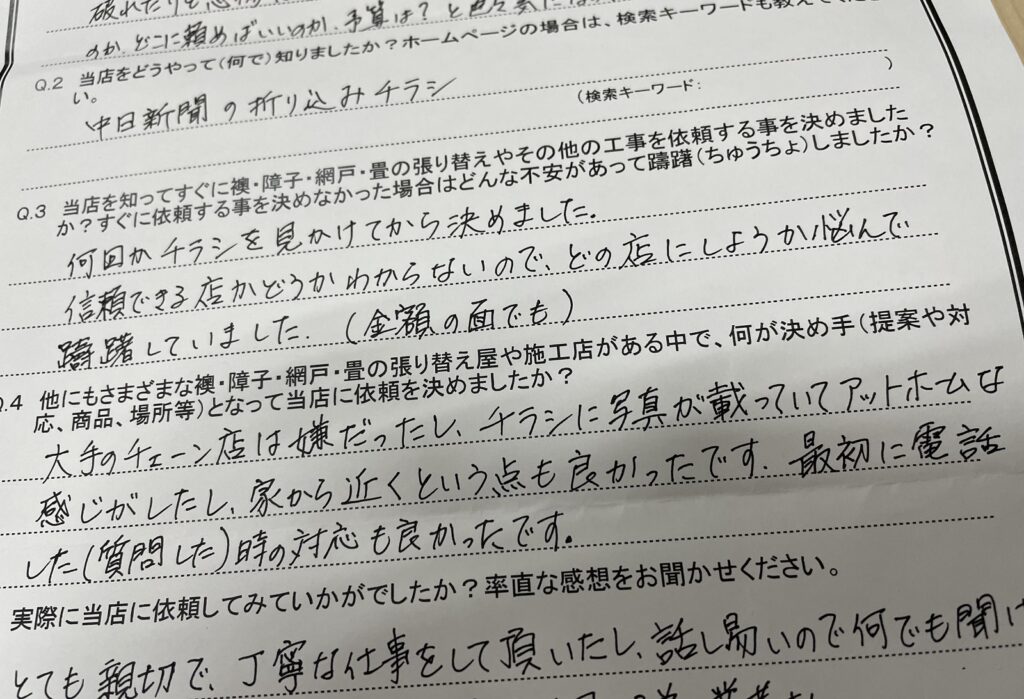 のか、どこに頼めばいいのか、予算は?と色々気になり
Q.2 当店をどうやって(何で)知りましたか?ホームページの場合は、検索キーワードも教えてくださ
い。
中日新聞の折り込みチラシ
(検索キーワード: )
Q.3 当店を知ってすぐに襖・障子・網戸・畳の張り替えやその他の工事を依頼する事を決めました
か?すぐに依頼する事を決めなかった場合はどんな不安があって躊躇(ちゅうちょ)しましたか?
何回かチラシを見かけてから決めました。
信頼できる店かどうかわからないので、どの店にしようか悩んで
躊躇していました。(金額の面でも)
Q.4 他にもさまざまな襖・障子・網戸・畳の張り替え屋や施工店がある中で、何が決め手(提案や対
応、商品、場所等)となって当店に依頼を決めましたか?
大手のチェーン店は嫌だったし、チラシに写真が載っていてアットホームな
感じがしたし、家から近くという点も良かったです。最初に電話
した(質問した)時の対応も良かったです。
実際に当店に依頼してみていかがでしたか?率直な感想をお聞かせください。
とても親切で、丁寧な仕事をして頂いたし、話し易いので何でも聞け